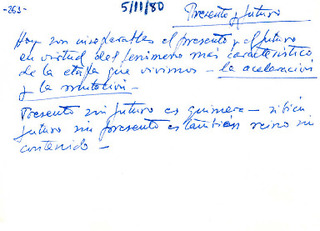 -263-
5/11/80
Presente y futuro
Hoy son inseparables el presente y el futuro
en virtud del fenómeno más característico
de la etapa que vivimos - la aceleración
y la mutación -
Presente sin futuro es quimera -
futuro sin presente es también reino sin
contenido -